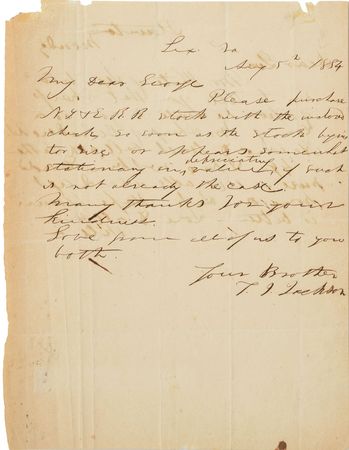 Lex. Va
Aug 5th 1854
My dear George
Please purchase
N. & E. R R stock with the
check so soon as the stock begins
to rise, or appears somewhat
depreciating
stationary in value, if such
is not already the case
Many thanks for your
kindness.
Love from all of us to you
both.
Your Brother
T. J. Jackson